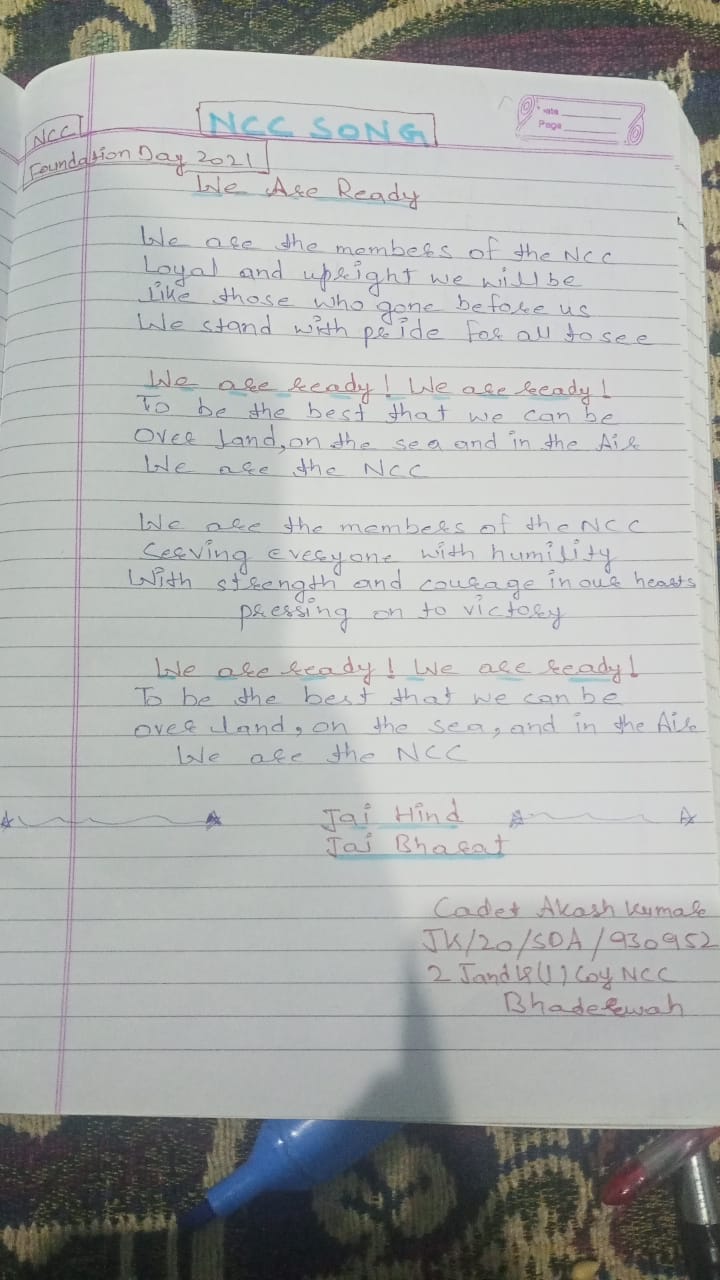 NCC SONG
Date
Page
NCC
Foundation Day 2021
We Are Ready
We are the members of the NCC
Loyal and upright we will be
Like those who gone before us
We stand with pride for all to see
We are ready! We are ready!
To be the best that we can be
Over land, on the sea and in the Air
We are the NCC
We are the members of the NCC
Serving Everyone with humility
With strength and courage in our hearts
pressing on to victory
We are ready! We are ready!
To be the best that we can be
over land, on the sea, and in the Air
We are the NCC
Jai Hind
Jai Bharat
Cadet Akash Kumar
JK/20/SDA/930952
2 J and K (I) Coy NCC
Bhaderwah